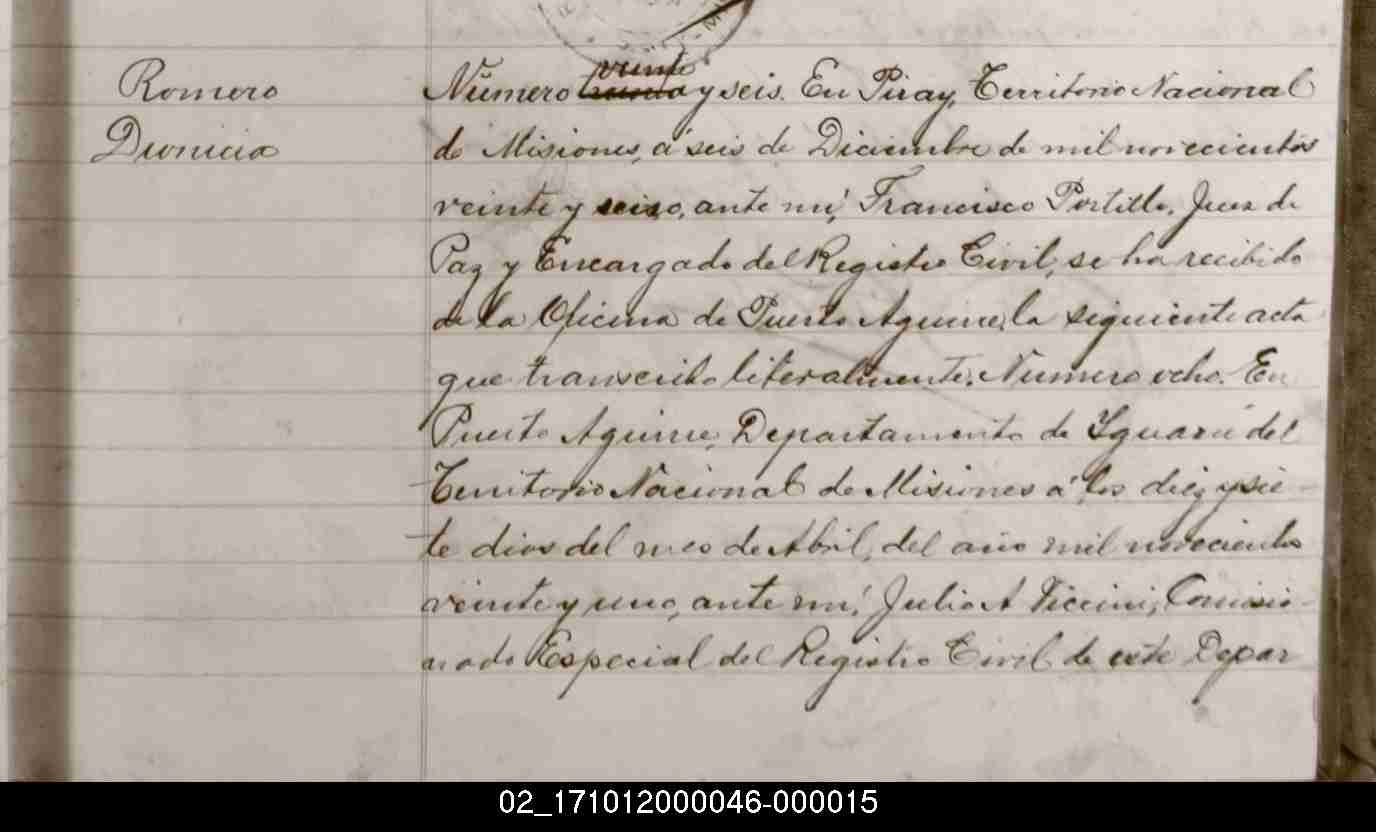 Romero
Dionicia
Número veinte y seis. En Piray, Territorio Nacional
de Misiones, á seis de Diciembre de mil novecientos
veinte y seis, ante mí, Francisco Portillo, Juez de
Paz y Encargado del Registro Civil, se ha recibido
de la Oficina de Puerto Aguirre, la siguiente acta
que transcribo literalmente. Numero ocho. En
Puerto Aguirre, Departamento de Yguazú del
Territorio Nacional de Misiones á los diez y sie-
te dias del mes de Abril, del año mil novecientos
veinte y uno, ante mí, Julio A Viccini, Comisio-
nado Especial del Registro Civil de este Depar
02_171012000046-000015